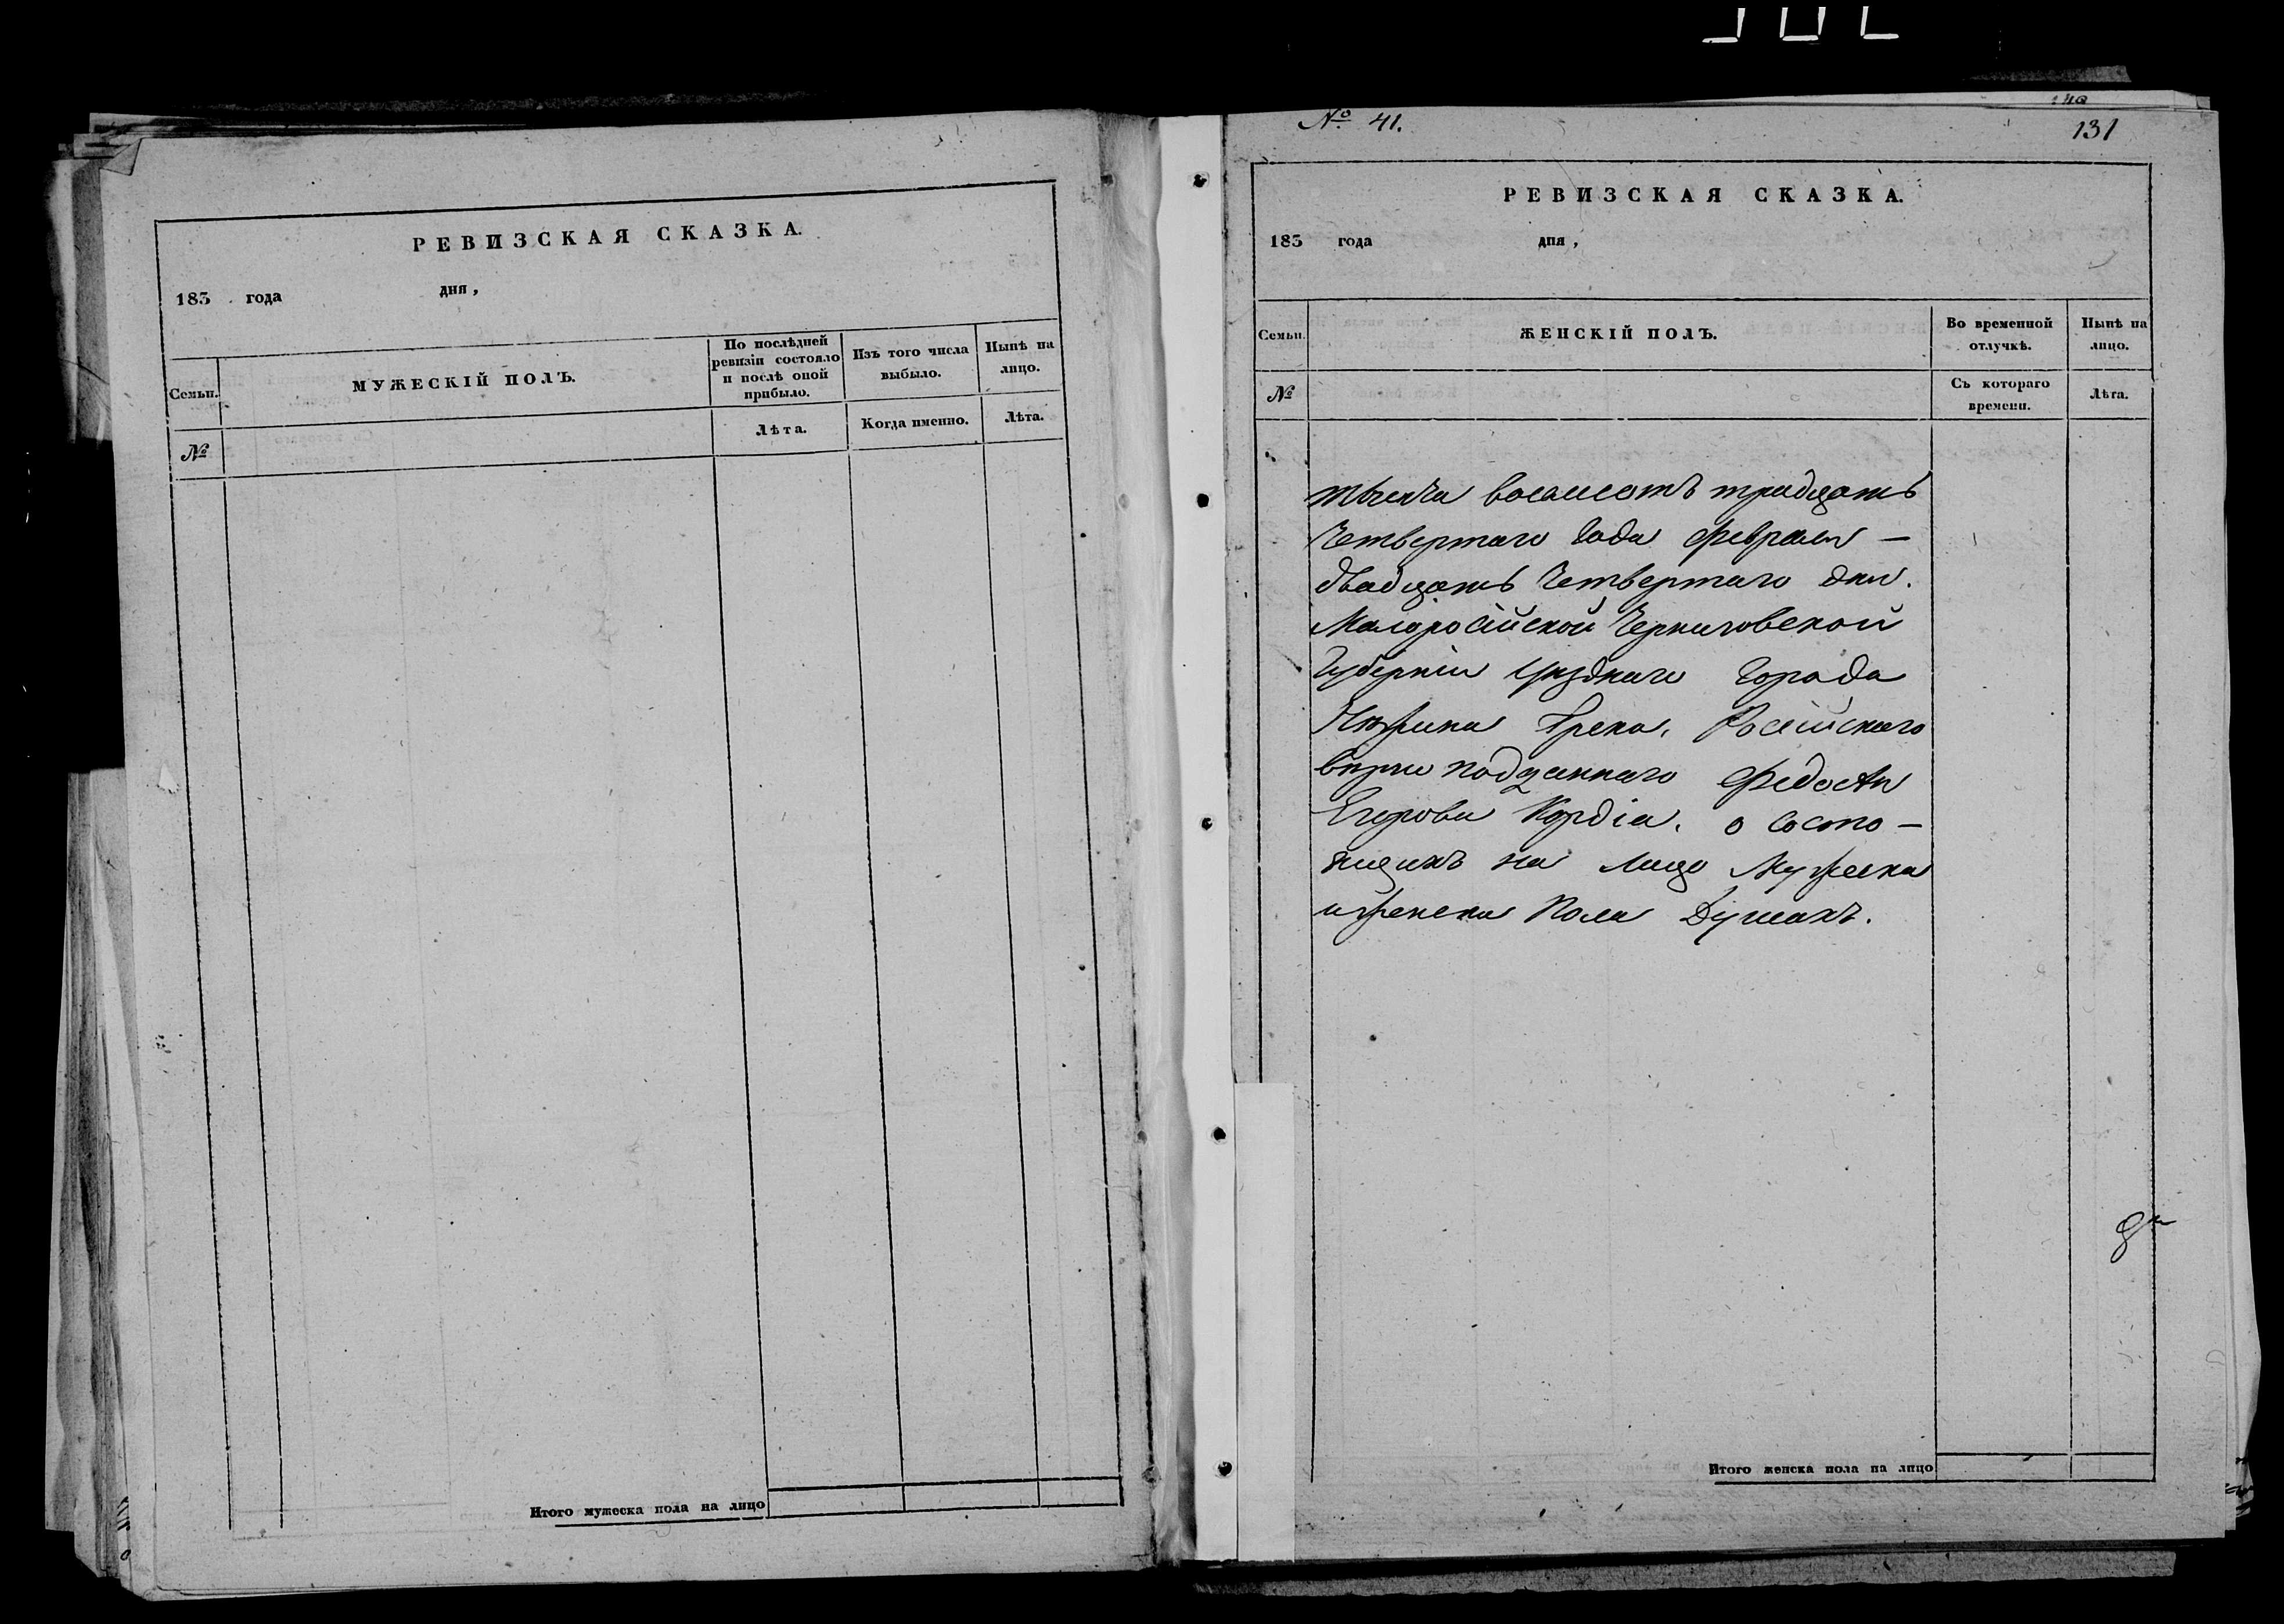 РЕВИЗСКАЯ СКАЗКА.
183 года дня,
Семьи.
МУЖЕСКІЙ ПОЛЪ.
По послѣдней ревизіи состояло и послѣ оной прибыло.
Изъ того числа выбыло.
Нынѣ на лицо.
№
Лѣта.
Когда именно.
Лѣта.
Итого мужеска пола на лицо
№ 41.
140
131
РЕВИЗСКАЯ СКАЗКА.
183 года дня,
Семьи.
ЖЕНСКІЙ ПОЛЪ.
Во временной отлучкѣ.
Нынѣ на лицо.
№
Съ котораго времени.
Лѣта.
тысяча восемсотъ тридцать
Четвертаго Года Февраля —
двадцать Четвертаго дня.
Малоросійской Черниговской
Губерніи Уѣзднаго Города
Нѣжина Грека, Російскаго
вѣрно подданнаго Федосія
Егорова Кордіа, о состо —
ящихъ на лицо Мужеска
и женска Пола Душахъ.
Итого женска пола на лицо